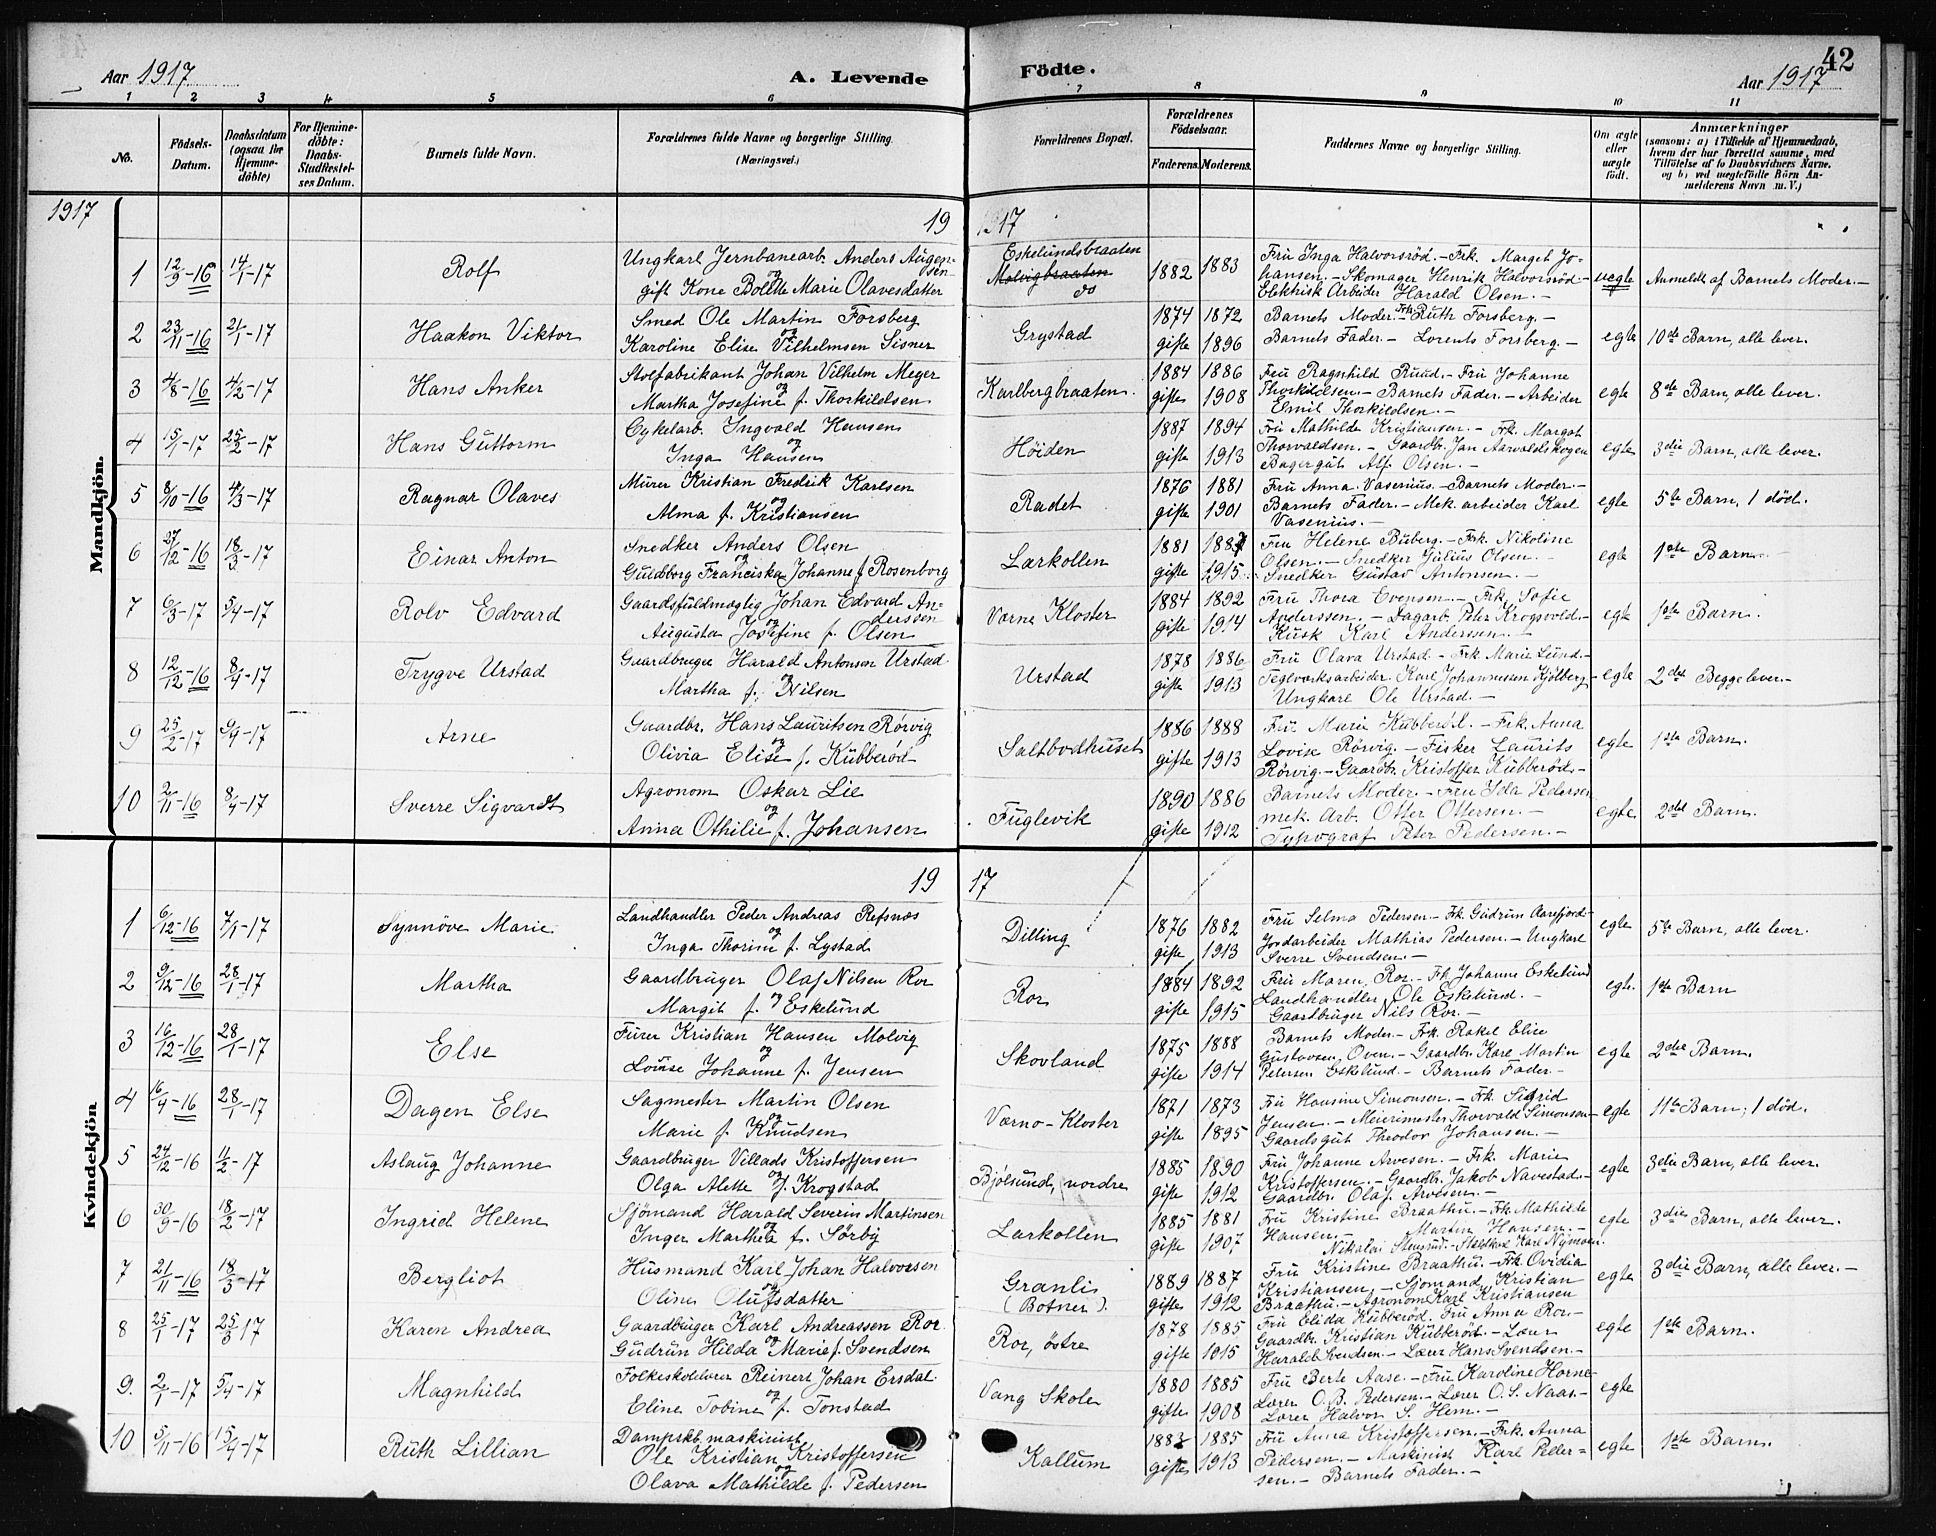 42
Aar 1917
A. Levende
Födte.
Aar 1917
1 2 3 4 5 6 7 8 9 10 11
No.
Födsels-Datum.
Daabsdatum (ogsaa for Hjemme-döbte)
For Hjemme-döbte: Daabs-Stadfæstelses Datum.
Barnets fulde Navn.
Forældrenes fulde Navne og borgerlige Stilling. (Næringsvei.)
Forældrenes Bopæl.
Forældrenes Födselsaar.
Faderens. Moderens.
Faddernes Navne og borgerlige Stilling.
Om ægte eller uægte födt.
Anmærkninger (saasom: a) i Tilfælde af Hjemmedaab, hvem der har forrettet samme, med Tilföielse af to Daabsvidners Navne, og b) ved uægtefödte Börn Anmelderens Navn m. V.)
1917
19 1917
Mandkjön.
1 12/9-16 14/1-17 Rolf
Ungkarl Jernbanearb. Anders Augensen
og
gift Kone Bolette Marie Olavesdatter
Eskelundsbraaten
Molvigbraaten
do
1882 1883
Fru Inga Halvorsröd.- Frk. Margit Jo-
hansen.- Skomager Henrik Halvorsröd.-
Elektrisk Arbeider Harald Olsen.-
uegte Anmeldt af Barnets Moder.-
2 23/11-16 21/1-17 Haakon Viktor
Smed Ole Martin Forsberg
og
Karoline Elise Vilhelmsen Sisner
Grystad
1874 1872
gifte 1896
Barnets Moder.- Frk. Ruth Forsberg.-
Barnets Fader.- Lorents Forsberg.-
egte 10de Barn, alle lever.
3 4/8-16 4/2-17 Hans Anker
Stolfabrikant Johan Vilhelm Meyer
og
Martha Josefine f. Thorkildsen
Karlbergbraaten.
1884 1886
gifte 1908
Fru Ragnhild Ruud.- Fru Johanne
Thorkildsen.- Barnets Fader.- Arbeider
Emil Thorkildsen.-
egte 8de Barn, alle lever.
4 15/1-17 25/2-17 Hans Guttorm
Cykelarb. Ingvald Hansen
og
Inga Hansen
Höiden
1887 1894
gifte 1913
Fru Mathilde Kristiansen.- Frk. Margot
Thorvaldsen.- Gaardbr. Jan Aarvoldskogen
Bagergut Alf Olsen.-
egte 3die Barn, alle lever.
5 8/10-16 4/3-17 Ragnar Olaves
Murer Kristian Fredrik Karlsen
og
Alma f. Kristiansen
Radet
1876 1881
gifte 1901
Fru Anna Vasenius.- Barnets Moder.-
Barnets Fader.- Mek. arbeider Karl
Vasenius.-
egte 5te Barn, 1 död.
6 27/12-16 18/3-17 Einar Anton
Snedker Anders Olsen
og
Guldborg Franciska Johanne f. Rosenborg
Larkollen
1881 1887
gifte 1915
Fru Helene Buberg.- Frk. Nikoline
Olsen.- Snedker Julius Olsen.-
Snedker Gustav Antonsen.-
egte 1ste Barn.
7 6/3-17 5/4-17 Rolv Edvard
Gaardsfuldmægtig Johan Edvard An-
derssen
og
Augusta Josefine f. Olsen
Værne Kloster
1884 1892
gifte 1914
Fru Thora Evensen.- Frk. Sofie
Anderssen.- Dagarb. Peter Krogsvold.-
Kusk Karl Anderssen.-
egte 1ste Barn.
8 12/12-16 8/4-17 Trygve Urstad
Gaardbruger Harald Antonsen Urstad
og
Martha f. Nilsen
Urstad
1878 1886
gifte 1913
Fru Olava Urstad.- Frk. Marie Lund.-
Teglverksarbeider Karl Johannessen Kjölberg
Ungkarl Ole Urstad.-
egte 2det Begge lever.-
9 25/2-17 9/4-17 Arne
Gaardbr. Hans Lauritsen Rörvig
og
Olivia Elise f. Kubberöd
Saltbodhuset
1886 1888
gifte 1913
Fru Marie Kubberöd.- Frk. Anna
Lovise Rörvig.- Fisker Laurits
Rörvig.- Gaardbr. Kristoffer Kubberöd.-
egte 1ste Barn.
10 2/11-16 8/4-17 Sverre Sigvardt
Agronom Oskar Lie
og
Anna Othilie f. Johansen
Fuglevik
1890 1886
gifte 1912
Barnets Moder.- Fru Ida Pedersen
mek. Arb. Otter Ottersen.-
Typograf Peter Pedersen.-
egte 2det Barn.
19 17
Kvindekjön
1 6/12-16 7/1-17 Synnöve Marie
Landhandler Peder Andreas Refsnæs
og
Inga Thorine f. Lystad
Dilling
1876 1882
gifte 1913
Fru Selma Pedersen.- Frk. Gudrun Aarefjord-
Jordarbeider Mathias Pedersen.- Ungkarl
Sverre Svendsen.-
egte 5te Barn, alle lever.
2 9/12-16 28/1-17 Martha
Gaardbruger Olaf Nilsen Ror
og
Margit f. Eskelund
Ror
1884 1892
gifte 1915
Fru Maren Ror.- Frk. Johanne Eskelund
Landhandler Ole Eskelund.-
Gaardbruger Nils Ror.-
egte. 1ste Barn
3 16/12-16 28/1-17 Else
Furer Kristian Hansen Molvig
og
Louise Johanne f. Jensen
Skovland
1875 1888
gifte 1914
Barnets Moder.- Frk. Rakel Elise
Gustavsen, Oven.- Gaardbr. Karl Martin
Petersen Eskelund.- Barnets Fader.-
egte 2det Barn.
4 16/4-16 28/1-17 Dagen Else
Sagmester Martin Olsen
og
Marie f. Knudsen
Værno-Kloster
1871 1873
gifte 1895
Fru Hansine Simonsen.- Frk. Sigrid
Jensen.- Meierimester Thorvald Simonsen-
Gaardsgut Theodor Johansen.-
egte 11te Barn; 1 död.
5 24/12-16 11/2-17 Aslaug Johanne
Gaardbruger Villads Kristoffersen
og
Olga Alette f. Krogstad
Bjölsund, nordre
1885 1890
gifte 1912
Fru Johanne Arvesen.- Frk. Marie
Kristoffersen.- Gaardbr. Jakob Navestad.-
Gaardbr. Olaf Arvesen.-
egte 3die Barn, alle lever.
6 30/9-16 18/2-17 Ingrid Helene
Sjömand Harald Severin Martinsen
og
Inger Marthea f. Sörby
Larkollen
1885 1881
gifte 1907
Fru Kristine Braathu.- Frk. Mathilde
Hansen.- Martin Hansen.-
Nikolai Stensrud.- Karl Nymoen.
egte 3die Barn, alle lever.
7 21/11-16 18/3-17 Bergliot
Husmand Karl Johan Halvorsen
og
Oline Olufsdatter
Granli
(Botner).
1889 1887
gifte 1912
Fru Kristine Braathu.- Frk. Ovidia
Kristiansen.- Sjömand Kristian
Braathu.- Agronom Karl Kristiansen
egte 3die Barn, alle lever.-
8 25/1-17 25/3-17 Karen Andrea
Gaardbruger Karl Andreassen Ror.
og
Gudrun Hilda Marie f. Svendsen
Ror, östre
1878 1885
gifte 1915
Fru Elida Kubberöd. Fru Anna Ror.-
Gaardbr. Kristian Kubberöd.- Lærer
Harald Svendsen.- Lærer Hans Svendsen.-
egte 1ste Barn.
9. 2/1-17 5/4-17 Magnhild
Folkeskolelærer Reinert Johan Ersdal
og
Eline Tobine f. Tonstad
Vang Skole
1880 1885
gifte 1908
Fru Berte Aase.- Fru Karoline Horne
Lærer O. B. Pedersen.- Lærer O. S. Naas.-
Lærer Halvor S. Hem.-
egte
10 5/11-16 15/4-17 Ruth Lillian
Dampskb. maskinist
Ole Kristian Kristoffersen
og
Olava Mathilde f. Pedersen
Kallum
1883 1885
gifte 1913
Fru Anna Kristoffersen.- Frk. Anna
Pedersen.- Maskinist Karl Peder-
sen.- Barnets Fader.-
egte 1ste Barn.